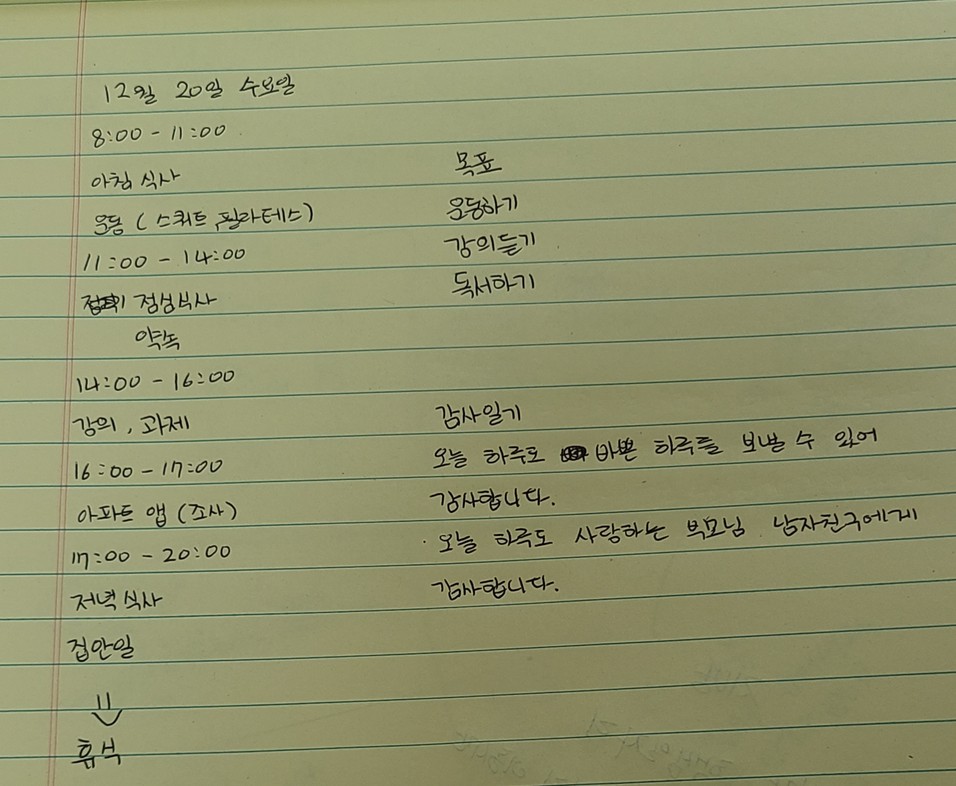 12월 20일 수요일
8:00 - 11:00
아침 식사
운동 ( 스쿼트, 필라테스 )
11:00 - 14:00
점심식사
약속
14:00 - 16:00
강의, 과제
16:00 - 17:00
아파트 앱 (조사)
17:00 - 20:00
저녁 식사
집안일
휴식
목표
운동하기
강의듣기
독서하기
감사일기
오늘 하루도 바쁜 하루를 보낼 수 있어
감사합니다.
오늘 하루도 사랑하는 부모님 남자친구에게
감사합니다.